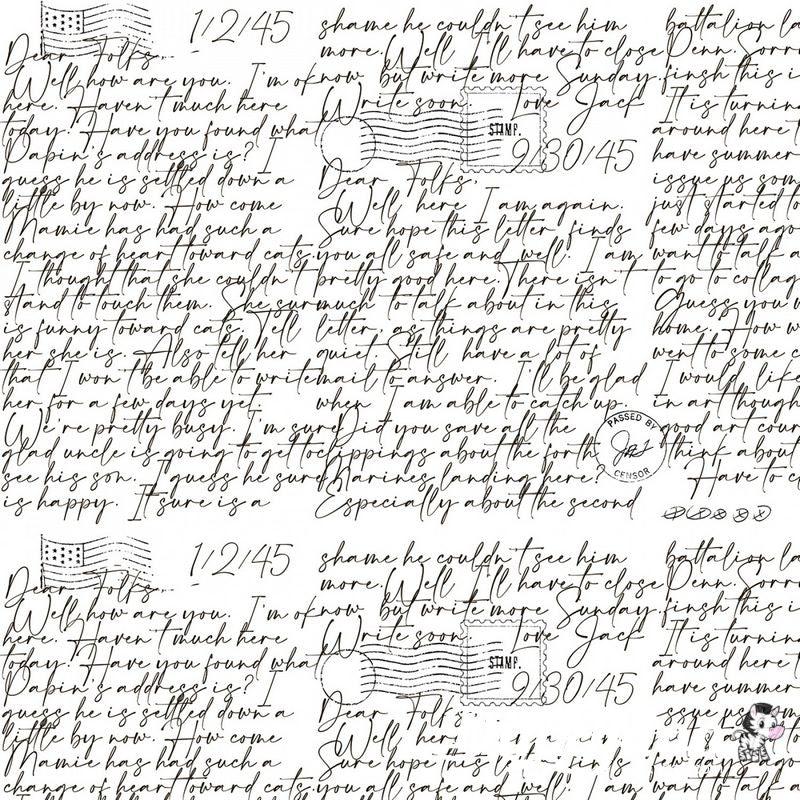 1/2/45
Dear Folks,
Well, how are you. I'm ok
here. Haven't much here
today. Have you found what
Papin's address is? I
guess he is settled down a
little by now. How come
Mamie has had such a
change of heart toward cats.
I though that she couldn't
stand to touch them. She sur
is funny toward cats. Tell
her she is. Also tell her
that I won't be able to write
her for a few days yet.
We're pretty busy. I'm sure
glad uncle is going to get to
see his son. I guess he sure
is happy. It sure is a
shame he couldn't see him
more. Well I'll have to close
now but write more Sunday.
Write soon. Love Jack
STAMP.
9/30/45
Dear Folks,
Well, here I am again.
Sure hope this letter finds
you all safe and well. I am
pretty good here. There isn't
much to talk about in this
letter, as things are pretty
quiet. Still have a lot of
mail to answer. I'll be glad
when I am able to catch up.
Did you save all the
clippings about the forth
Marines landing here?
Especially about the second
PASSED BY
CENSOR
battalion la
Penn. Sorro
finsh this i
It is turnin
around here t
have summer
issue us som
just started to
few days ago
want to talk a
to go to collag
Guess you w
home. How w
went to some c
I would like
in art though
good art cour
think about
Have to c
1/2/45
Dear Folks,
Well, how are you. I'm ok
here. Haven't much here
today. Have you found what
Papin's address is? I
guess he is settled down a
little by now. How come
Mamie has had such a
change of heart toward cats.
shame he couldn't see him
more. Well I'll have to close
now but write more Sunday.
Write soon. Love Jack
STAMP.
9/30/45
Dear Folks
Well, her
Sure hope this le
you all safe and well. I am
battalion la
Penn. Sorro
finsh this i
It is turnin
around here t
have summer
want to talk a